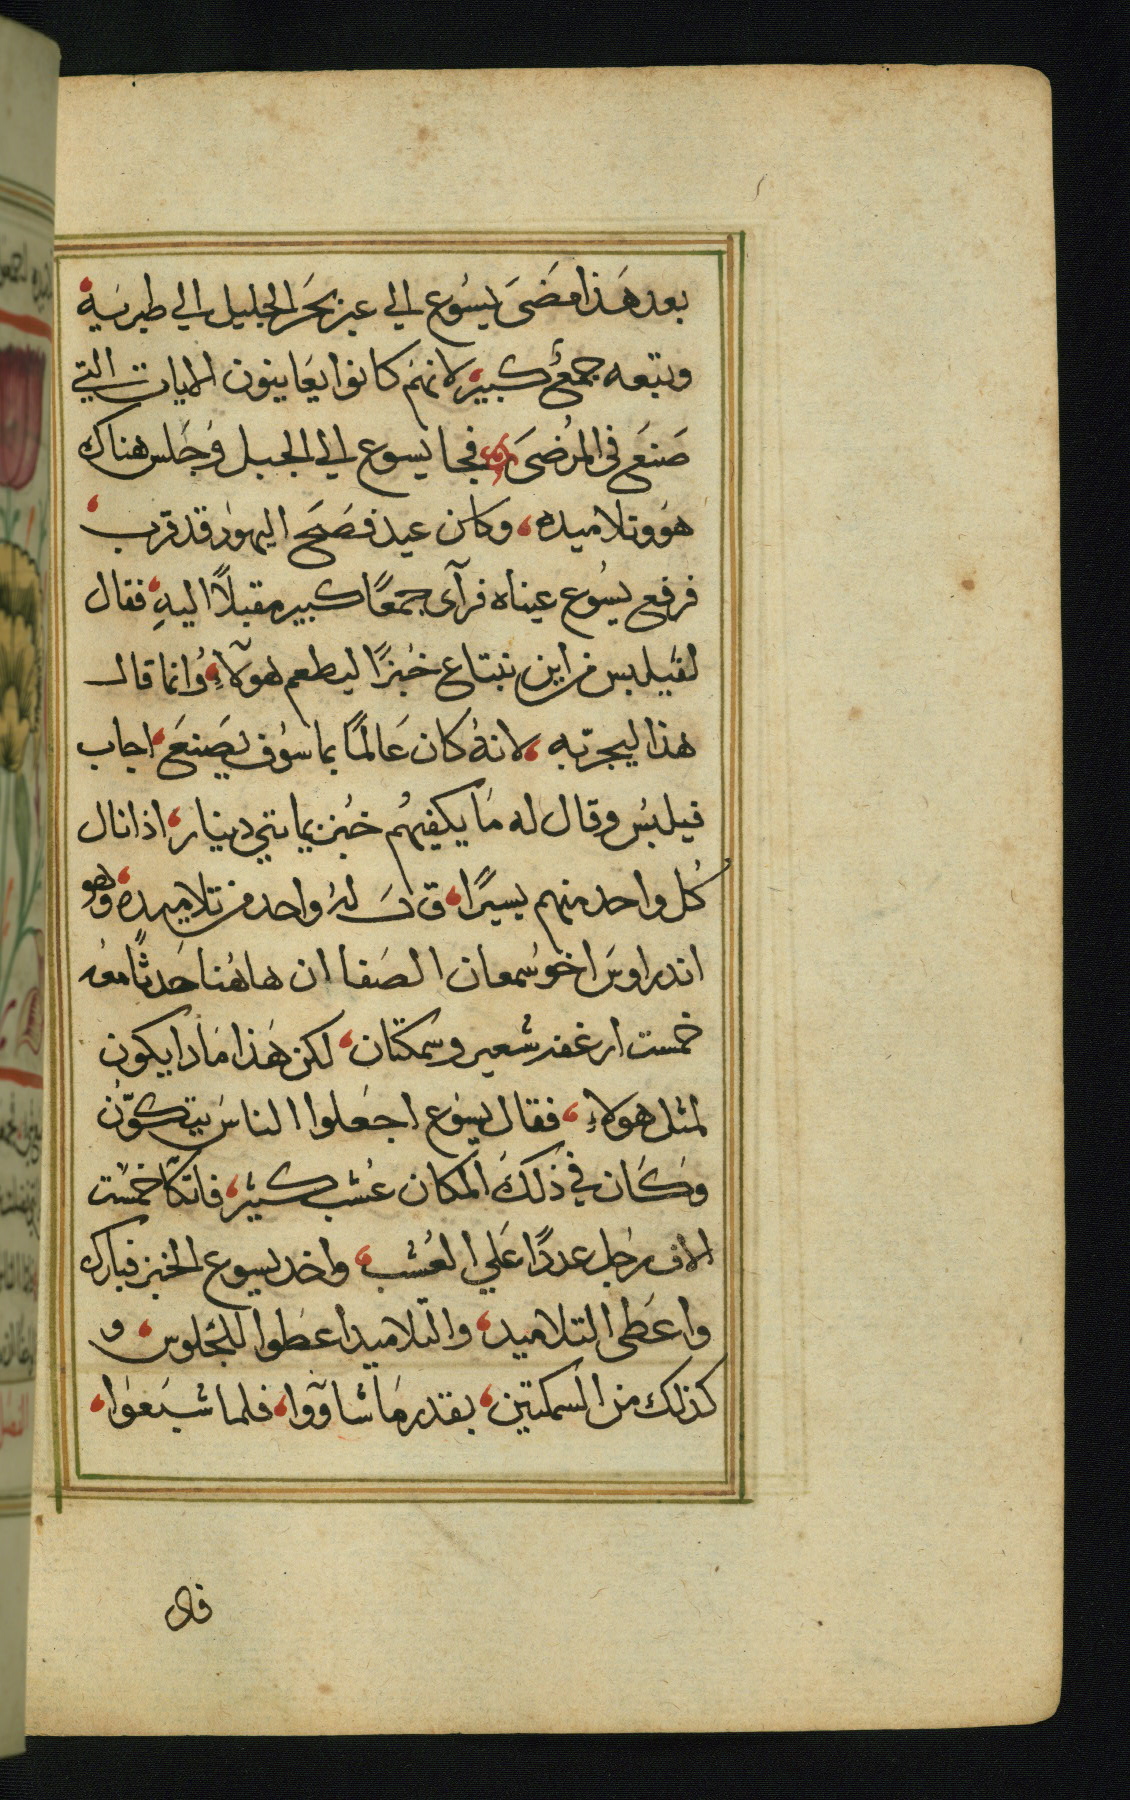 بعد هَذا مَضَى يسُوع الي عبر بحَر الجليل الي طبريَة
وتبعه جمعٌ كبير لانهم كانوا يعَاينون الايات التي
صَنعَ في المرُضىَ فجا يسوع الي الجبل وَجَلس هناك
هوَ وتلاميده وكان عيد فصَح اليهوَد قد قرب
فرفع يسُوع عيناه فرآى جمعًا كبير مقبلًا اليهِ فقال
لفيلبس من اين نبتاع خبزًا ليطعم هولآءِ وُانما قال
هذا ليجرّبه لانهُ كان عَالمًا بما سوُف يصَنعَ اجاب
فيلبسُ وقال له مَا يكفيهُم خبُز بمايتي دينار اذا نال
كُل واحد منهم يسيرًا قال لهُ واحد من تلاميده وهو
اندراوسَ اخو سُمعان الصَفا ان هاهُنا حَدثًا معُه
خمست ارغفه شعير وسمكتان لكن هَذا مَادا يكون
لمثل هولاءِ فقال يسوَع اجعَلوا الناسَ يتكوّنُ
وكَان في ذلكَ المكان عُشب كثير فاتكآ خمسُت
الاف رجُل عددًا عَلي العُشب واخد يسوع الخبز فبارك
واعَطى التلاميد والتلاميد اعطَوا للجُلوس و
كذلك من السمكتين بقدر مَا شاؤوا فلما شبَعوَا